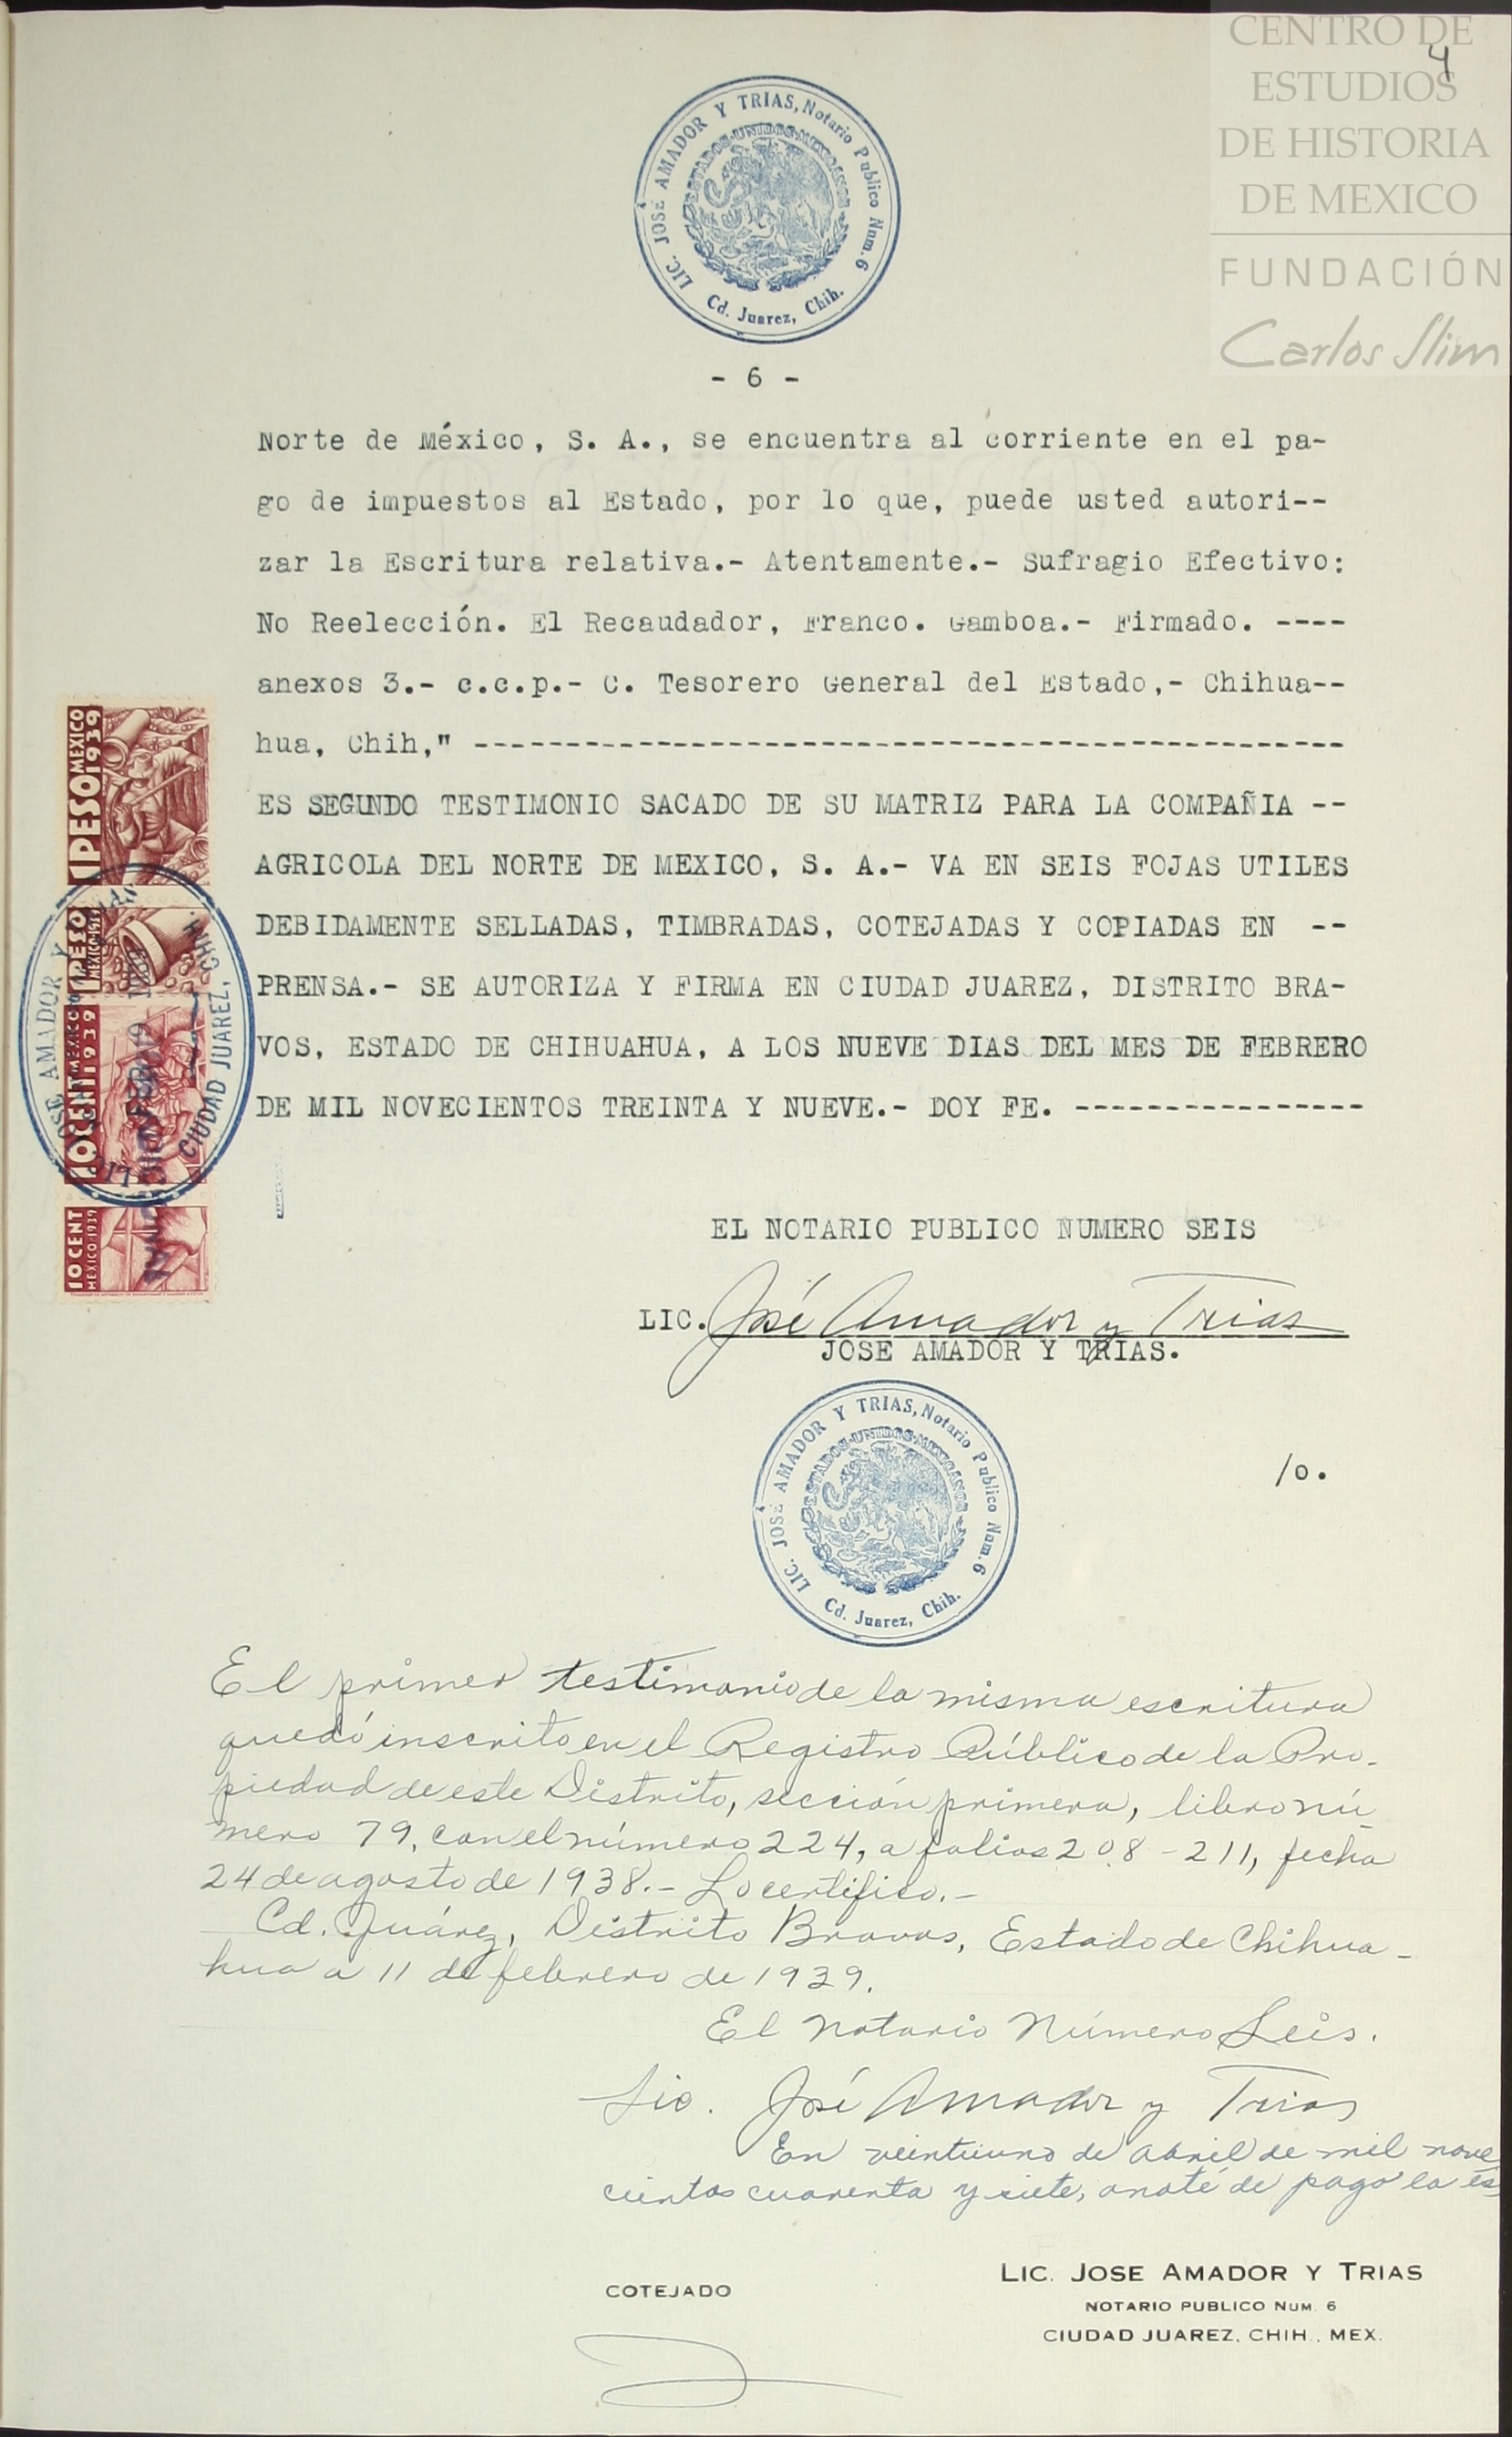 CENTRO DE
4
ESTUDIOS
DE HISTORIA
DE MEXICO
FUNDACIÓN
Carlos Slim
LIC. JOSÉ AMADOR Y TRIAS, Notario Publico Num. 6
ESTADOS UNIDOS MEXICANOS
Cd. Juarez, Chih.
- 6 -
Norte de México, S. A., se encuentra al corriente en el pa-
go de impuestos al Estado, por lo que, puede usted autori--
zar la Escritura relativa.- Atentamente.- Sufragio Efectivo:
No Reelección. El Recaudador, Franco. Gamboa.- Firmado. ----
anexos 3.- c.c.p.- C. Tesorero General del Estado,- Chihua--
hua, Chih," ------------------------------------------------
ES SEGUNDO TESTIMONIO SACADO DE SU MATRIZ PARA LA COMPAÑIA --
AGRICOLA DEL NORTE DE MEXICO, S. A.- VA EN SEIS FOJAS UTILES
DEBIDAMENTE SELLADAS, TIMBRADAS, COTEJADAS Y COPIADAS EN --
PRENSA.- SE AUTORIZA Y FIRMA EN CIUDAD JUAREZ, DISTRITO BRA-
VOS, ESTADO DE CHIHUAHUA, A LOS NUEVE DIAS DEL MES DE FEBRERO
DE MIL NOVECIENTOS TREINTA Y NUEVE.- DOY FE. ----------------
1 PESO MEXICO 1939
1 PESO MEXICO-1939
10 CENT MEXICO 1939
10 CENT MEXICO-1939
LIC. JOSE AMADOR Y TRIAS
CIUDAD JUAREZ, CHIH.
EL NOTARIO PUBLICO NUMERO SEIS
LIC. José Amador y Trias
JOSE AMADOR Y TRIAS.
LIC. JOSÉ AMADOR Y TRIAS, Notario Publico Num. 6
ESTADOS UNIDOS MEXICANOS
Cd. Juarez, Chih.
/o.
El primer testimonio de la misma escritura
quedó inscrito en el Registro Público de la Pro-
piedad de este Distrito, sección primera, libro nú-
mero 79, con el número 224, a folios 208 - 211, fecha
24 de agosto de 1938.- Lo certifico.-
Cd. Juárez, Distrito Bravos, Estado de Chihua-
hua a 11 de febrero de 1939.
El Notario Número Seis.
Lic. José Amador y Trias
En veintiuno de abril de mil nove
cientos cuarenta y siete, anoté de pago la es
COTEJADO
LIC. JOSE AMADOR Y TRIAS
NOTARIO PUBLICO NUM. 6
CIUDAD JUAREZ, CHIH., MEX.